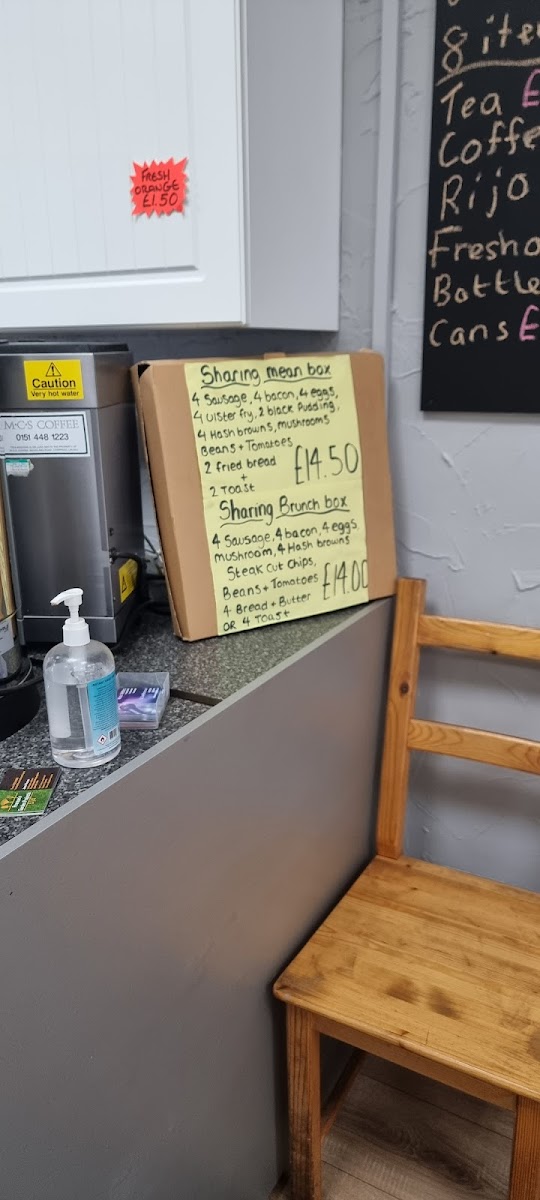 FRESH
ORANGE
£1.50
8 ite
Tea £
Coffe
Rijo
Fresh o
Bottle
Cans £
Caution
Very hot water
M·C·S COFFEE
0151 448 1223
Sharing mean box
4 Sausage, 4 bacon, 4 eggs,
4 Ulster fry, 2 black Pudding,
4 Hash browns, mushrooms
Beans + Tomatoes
2 fried bread
+
2 Toast
£14.50
Sharing Brunch box
4 Sausage, 4 bacon, 4 eggs
mushroom, 4 Hash browns
Steak cut chips,
Beans + Tomatoes
4 Bread + Butter
OR 4 Toast
£14.00